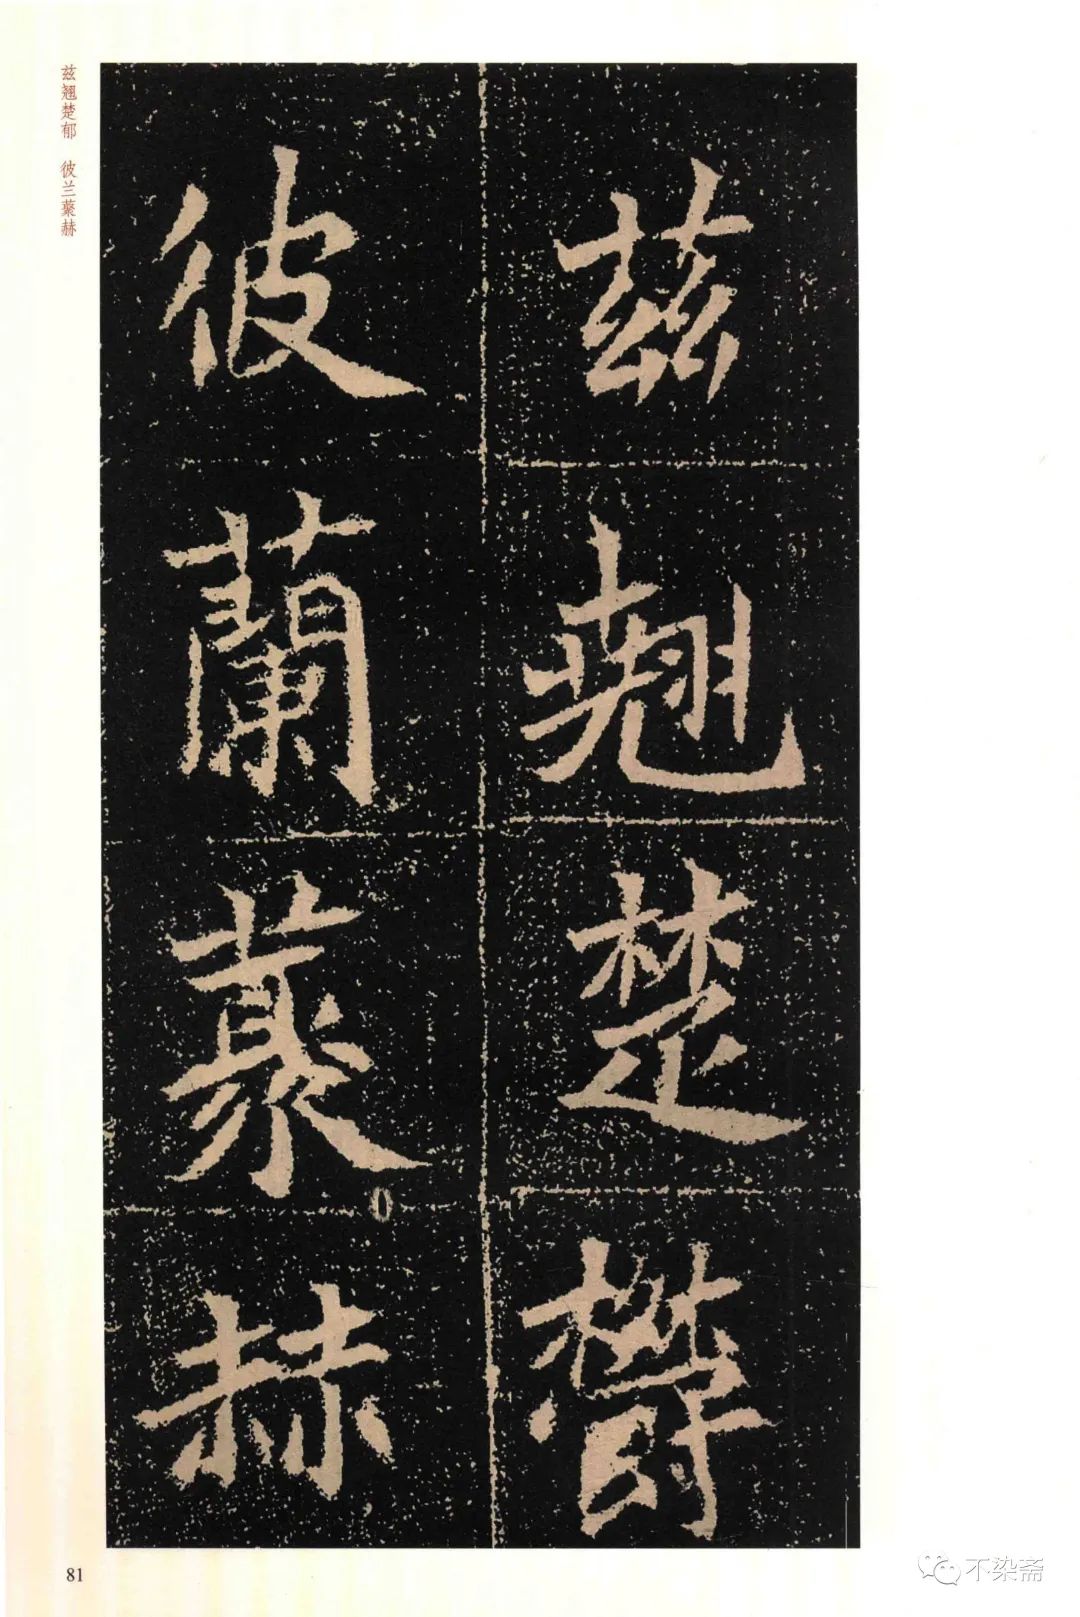 兹翘楚郁 彼兰薆赫
兹翹楚欝
彼蘭蕠赫
81
不染斋